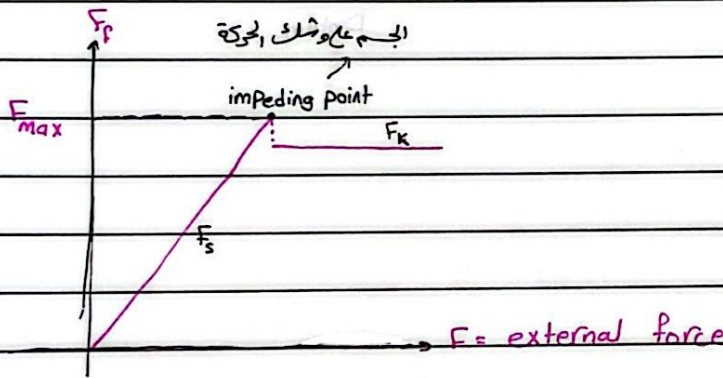 F_f
الجسم على وشك الحركة
impeding point
F_max
F_k
F_s
F = external force